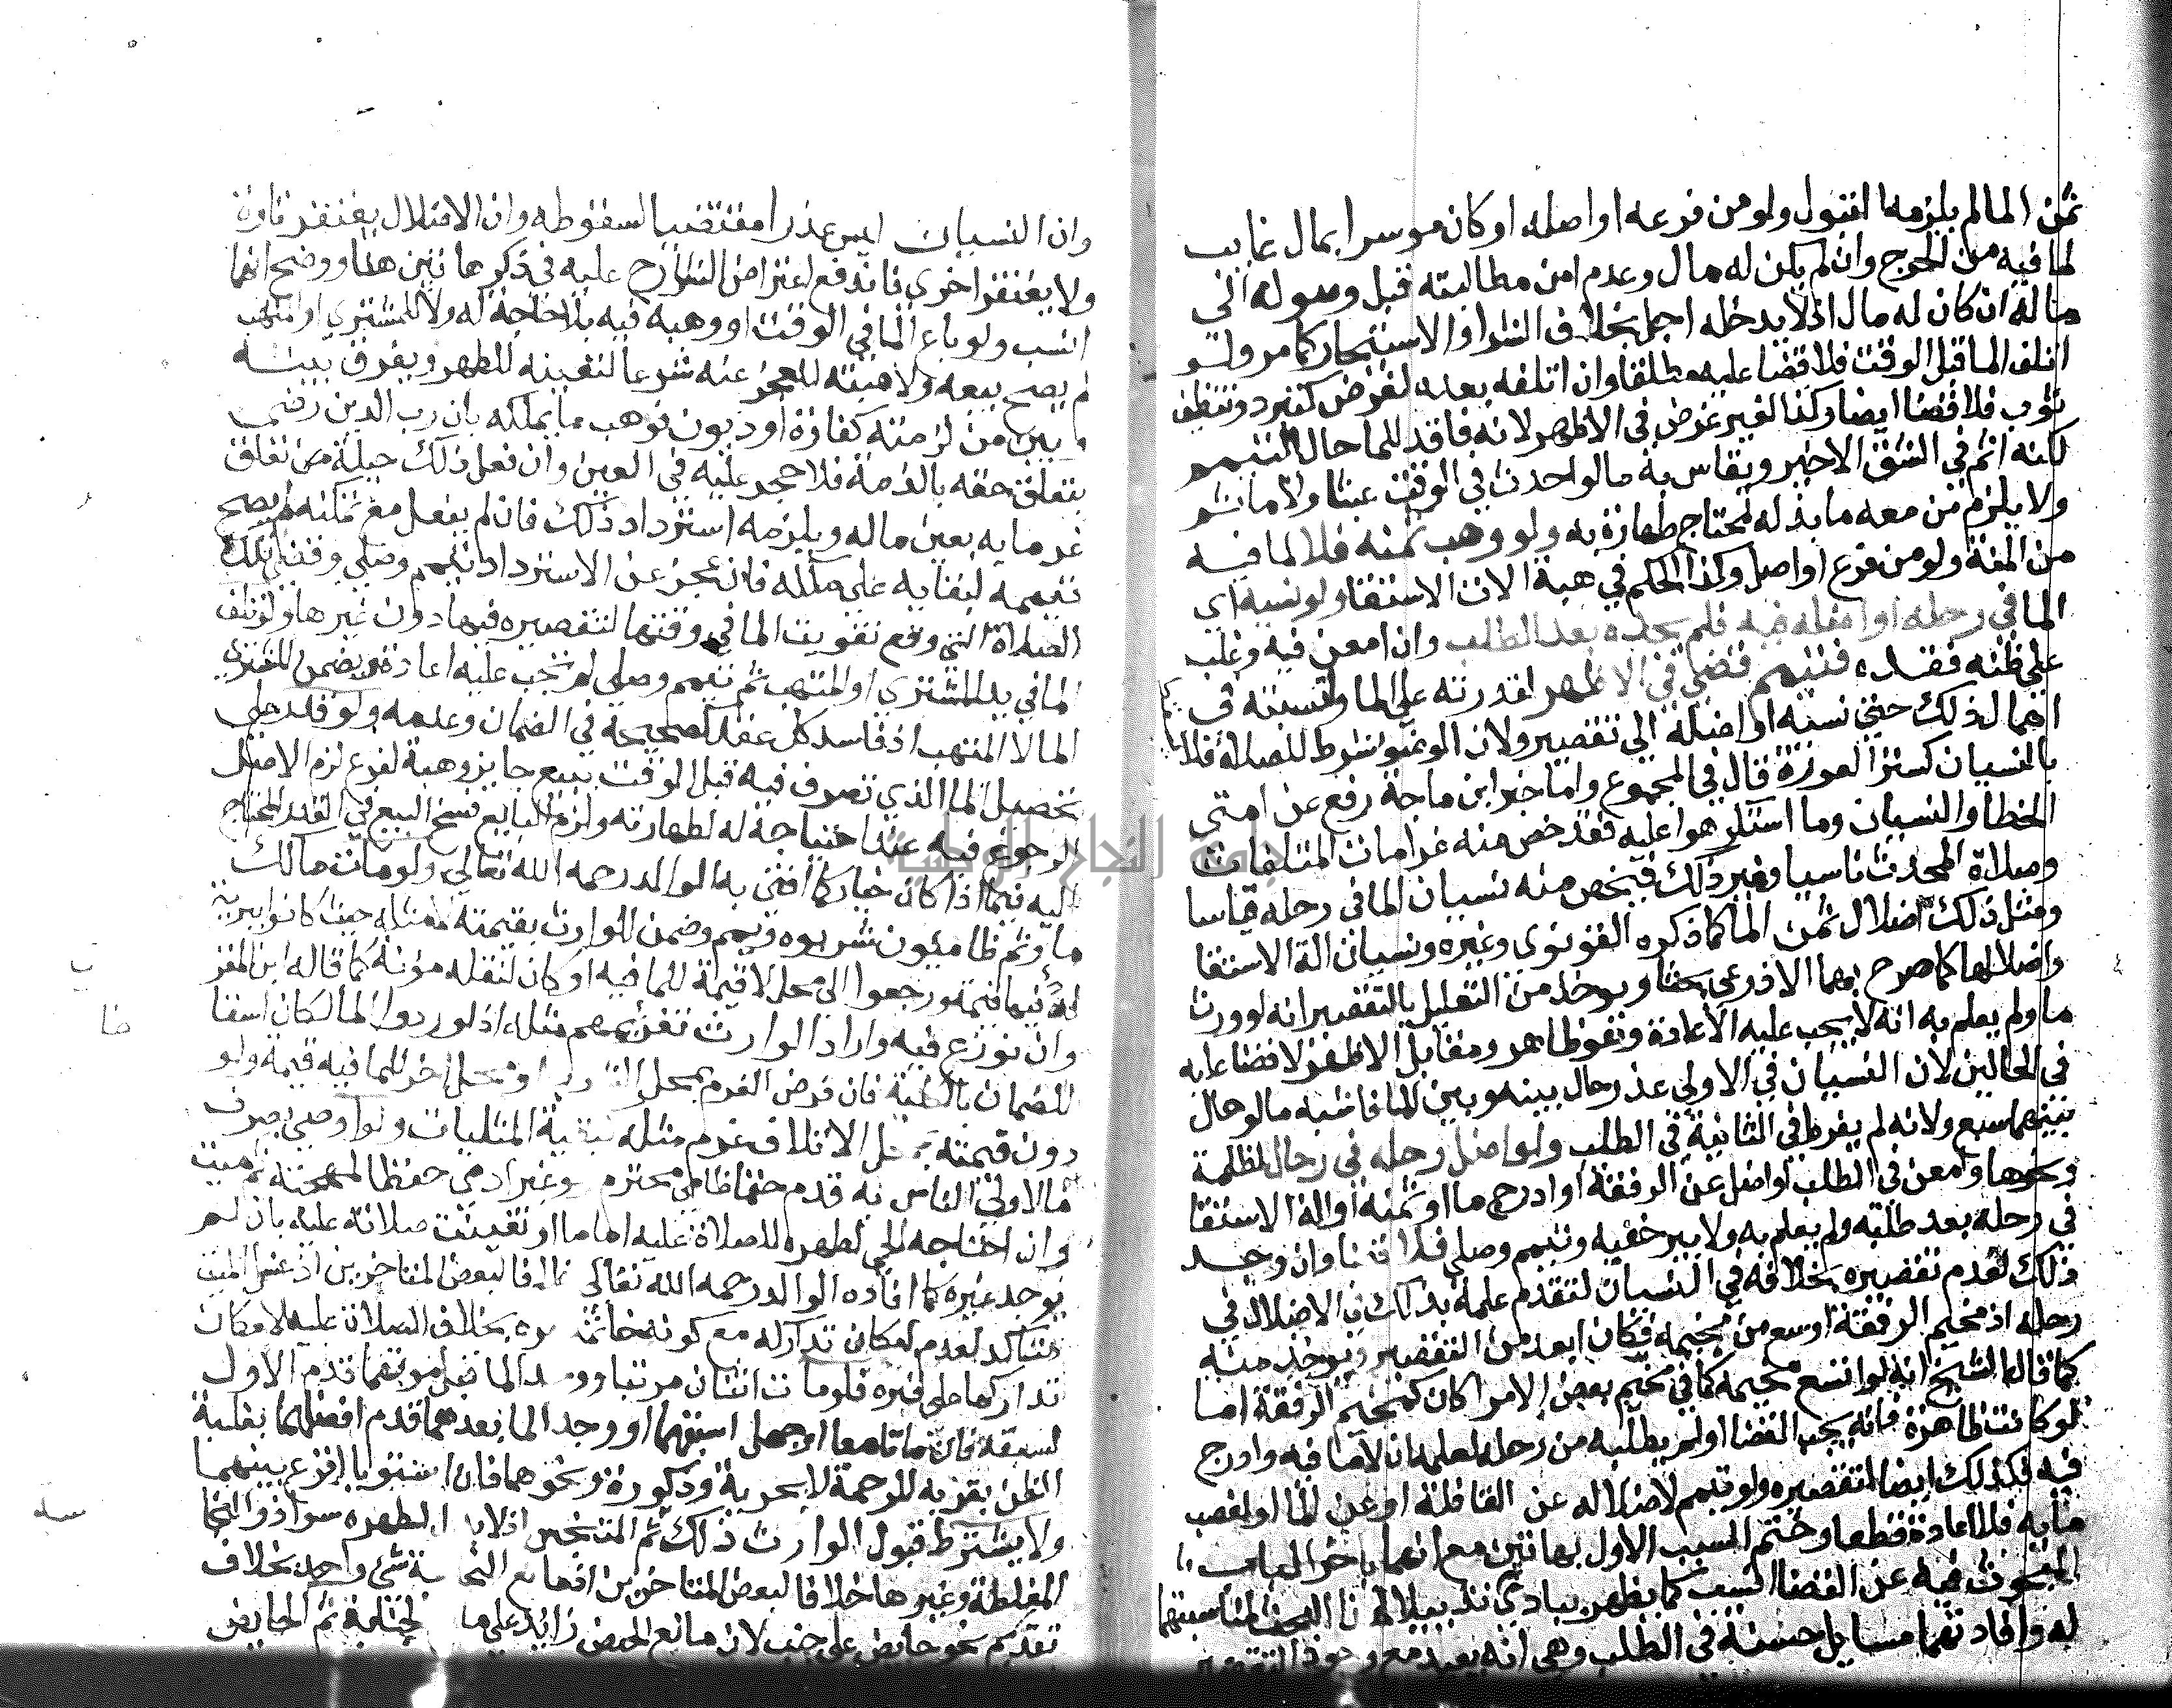 ثمن الما لم يلزمه القبول ولو من فرعه او اصله او كان موسرا بمال غايب
لما فيه من الحرج وان لم يكن له مال وعدم امن مطالبته قبل وصوله الي
ماله ان كان له مال اذ لا يدخله اجل بخلاف الشرا والاستيجار كما مر ولو
اتلف الما قبل الوقت فلا قضا عليه مطلقا وان اتلفه بعده لغرض كتبرد وتنظف
ثوب فلا قضا ايضا وكذا لغير غرض في الاظهر لانه فاقد للما حال التيمم
لكنه اثم في الشق الاخير ويقاس به ما لو احدث في الوقت عبثا ولا ما ثم
ولا يلزم من معه ما بذله لمحتاج طهارة به ولو وهب ثمنه فلا لما فيه
من المنة ولو من فرع او اصل وكذا الحكم في هبة الات الاستقا ولو نسيه اي
الما في رحله او اضله فيه فلم يجده بعد الطلب وان امعن فيه وغلب
علي ظنه فقده فتيمم قضي في الاظهر لقدرته علي الما ولنسبته في
اهمال ذلك حتي نسيه او اضله الي تقصير ولان الوضو شرط للصلاة فلا
بالنسيان كستر العورة قال في المجموع واما خبر ابن ماجة رفع عن امتي
الخطا والنسيان وما استكرهوا عليه فقد خص منه غرامات المتلفات
وصلاة المحدث ناسيا وغير ذلك فيخص منه نسيان الما في رحله قياسا
ومثل ذلك اضلال ثمن الما كما ذكره القونوي وغيره ونسيان الة الاستقا
واضلالها كما صرح بهما الاذرعي بحثا ويوخذ من التعليل بالتقصير انه لو ورث
ما ولم يعلم به انه لا يجب عليه الاعادة وهو ظاهر ومقابل الاظهر لا قضا عليه
في الحالين لان النسيان في الاولي عذر حال بينه وبين الما فاشبه ما لو حال
بينهما سبع ولانه لم يفرط في الثانية في الطلب ولو اضل رحله في رحال لظلمة
ونحوها وامعن في الطلب او اضل عن الرفقة او ادرج ما او ثمنه او الة الاستقا
في رحله بعد طلبه ولم يعلم به ولا ببير خفيه وتيمم وصلي فلا قضا وان وجد
ذلك لعدم تقصيره بخلافه في النسيان لتقدم علمه بذلك وفي الاضلال في
رحله اذ مخيم الرفقة اوسع من مخيمه فكان ابعد من التقصير ويوخذ منه
كما قاله الشيخ انه لو اتسع مخيمه كما في مخيم بعض الامرا كان كمخيم الرفقة اما
لو كانت ظاهرة فانه يجب القضا او لم يطلبه من رحله لعلمه ان لا ما فيه وادرج
فيه فكذلك ايضا لتقصيره ولو تيمم لاضلاله عن القافلة او عن الما او لغصب
مايه فلا اعادة قطعا وختم السبب الاول بهاتين مع انهما باخر الباب
المبحوث فيه عن القضا انسب كما يظهر ببادي تذييلا لهذا المبحث لمناسبتهما
له وافادتهما مسايل حسنة في الطلب وهي انه يعيد مع وجود التقصير
وان النسيان ليس عذرا مقتضيا لسقوطه وان الاضلال يغتفر تارة
ولا يغتفر اخري فاندفع اعتراض الشارح عليه في ذكر هاتين هنا ووضح انهما
انسب ولو باع الما في الوقت او وهبه فيه بلا حاجة له ولا للمشتري او المتهب
لم يصح بيعه ولا هبته للعجز عنه شرعا لتعينه للطهر ويفرق بينه
وبين من لزمته كفارة او ديون فوهب ما يملكه بان رب الدين رضي
بتعلق حقه بالذمة فلا حجر عليه في العين وان فعل ذلك حيلة من تعلق
غرمايه بعين ماله ويلزمه استرداد ذلك فان لم يفعل مع تمكنه لم يصح
تيممه لبقايه علي ملكه فان عجز عن الاسترداد تيمم وصلي وقضي تلك
الصلاة التي وقع تفويت الما في وقتها لتقصيره فيها دون غيرها ولو تلف
الما في يد المشتري او المتهب ثم تيمم وصلي لم تجب عليه اعادة ويضمن المشتري
الما لا المتهب اذ فاسد كل عقد كصحيحه في الضمان وعدمه ولو قدر علي
تحصيل الما الذي تصرف فيه قبل الوقت ببيع جايز وهبة لفرع لزم الاصل
الرجوع فيه عند احتياجه له لطهارته ولزم البايع فسخ البيع في القدر المحتاج
اليه فيما اذا كان خيار كما افتي به الوالد رحمه الله تعالي ولو مات مالك
ما وثم ظاميون شربوه ويمم وضمن للوارث بقيمته لا مثله حيث كانوا ببرية
له فيها قيمة ورجعوا الي محل لا قيمة للما فيه او كان لنقله مونة كما قاله ابن المقر
وان نوزع فيه واراد الوارث تغريمهم مثله اذ لو ردوا الما لكان اسقا
للضمان بالكلية فان فرض الغرم بمحل الشرب او محل اخر للما فيه قيمة ولو
دون قيمته بمحل الاتلاف غرم مثله كبقية المثليات ولو اوصي بصرف
ما لاولي الناس به قدم حتما ظامي محترم وغير ادمي حفظا لمهجته ثم ميت
وان احتاجه الحي لطهره للصلاة عليه اماما او تعينت صلاته عليه بان لم
يوجد غيره كما افاده الوالد رحمه الله تعالي خالفا لبعض المتاخرين اذ غسل الميت
متاكد لعدم امكان تداركه مع كونه خاتمة طهره بخلاف الصلاة عليه لامكان
تداركها علي قبره فلو مات اثنان مرتبا ووجد الما قبل موتهما قدم الاول
لسبقه فان ماتا معا او جهل اسبقهما او وجد الما بعدهما قدم افضلهما بغلبة
الظن بقربه للرحمة لا بحرية وذكورة ونحوهما فان استويا اقرع بينهما
ولا يشترط قبول الوارث ذلك ثم المتنجس اذ لا بدل لطهره سوا ذو النجا
المغلظة وغيرها خلافا لبعض المتاخرين اذ مانع النجاسة شي واحد بخلاف
تقديم نحو حايض علي جنب لان مانع الحيض زايد علي ما لجنابة ثم الحايض
جامعة النجاح الوطنية